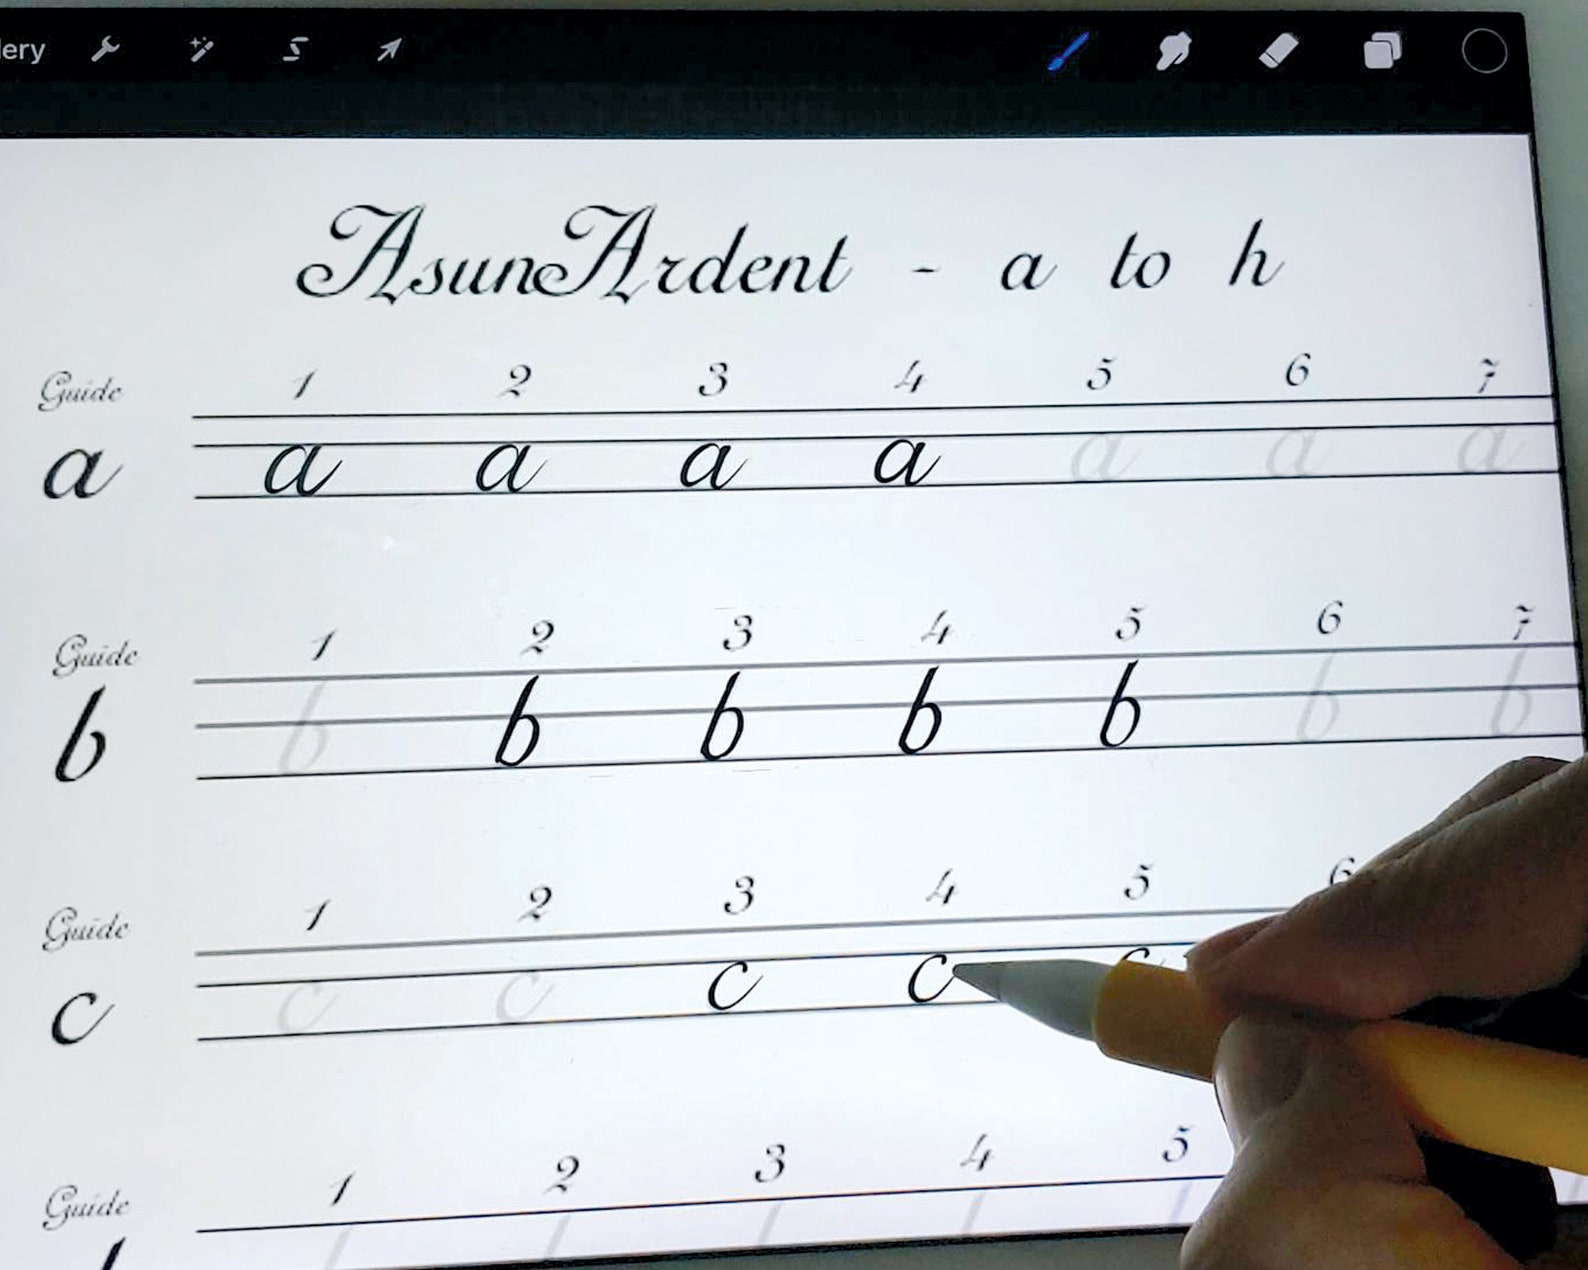 AsunArdent - a to h
Guide 1 2 3 4 5 6 7
a a a a a a a a
Guide 1 2 3 4 5 6 7
b b b b b b b b
Guide 1 2 3 4 5 6
c c c c c c
Guide 1 2 3 4 5